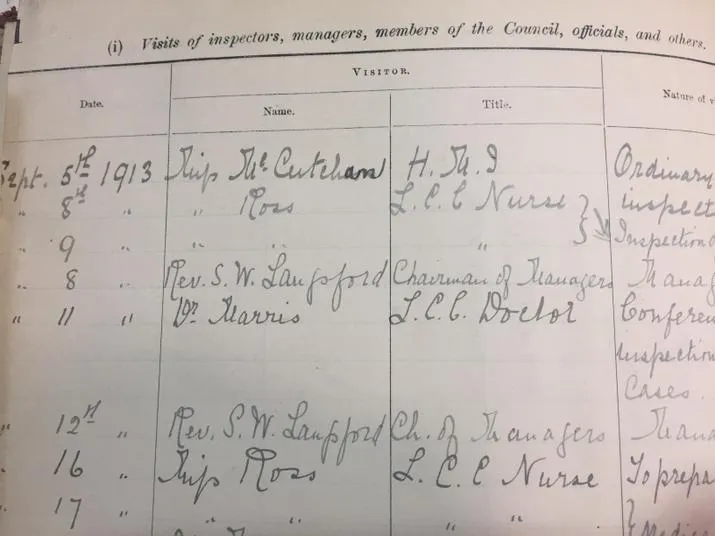 (i) Visits of inspectors, managers, members of the Council, officials, and others.
VISITOR.
Date. Name. Title. Nature of v
Sept. 5th 1913 Miss McCutchan H.M.I Ordinary
" 8th " " Ross L.C.C Nurse } inspect
" 9 " " " " } Inspection o
" 8 " Rev. S. W. Langford Chairman of Managers Manag
" 11 " Dr Harris L.C.C. Doctor Conferen
Inspection
Cases.
" 12th " Rev. S. W. Langford Ch. of Managers Mana
" 16 " Miss Ross L.C.C Nurse To prepa
" 17 " " " " " } Medic